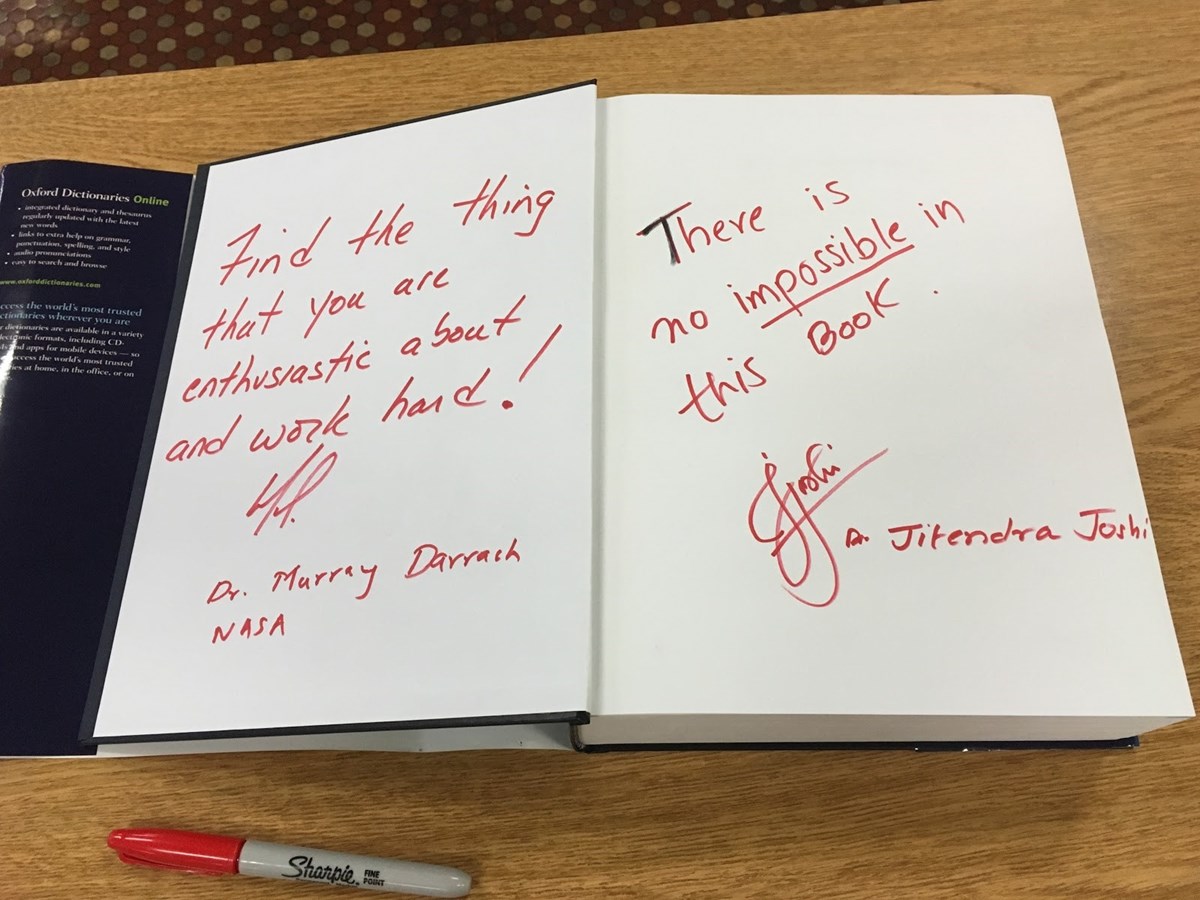 Oxford Dictionaries Online
• integrated dictionary and thesaurus
regularly updated with the latest
new words
• links to extra help on grammar,
punctuation, spelling, and style
• audio pronunciations
• easy to search and browse
www.oxforddictionaries.com
ccess the world's most trusted
ctionaries wherever you are
r dictionaries are available in a variety
lectronic formats, including CD-
and apps for mobile devices — so
access the world's most trusted
ies at home, in the office, or on
Find the thing
that you are
enthusiastic about
and work hard!
Dr. Murray Darrach
NASA
There is
no impossible in
this Book.
Joshi
Dr. Jitendra Joshi
Sharpie. FINE
POINT